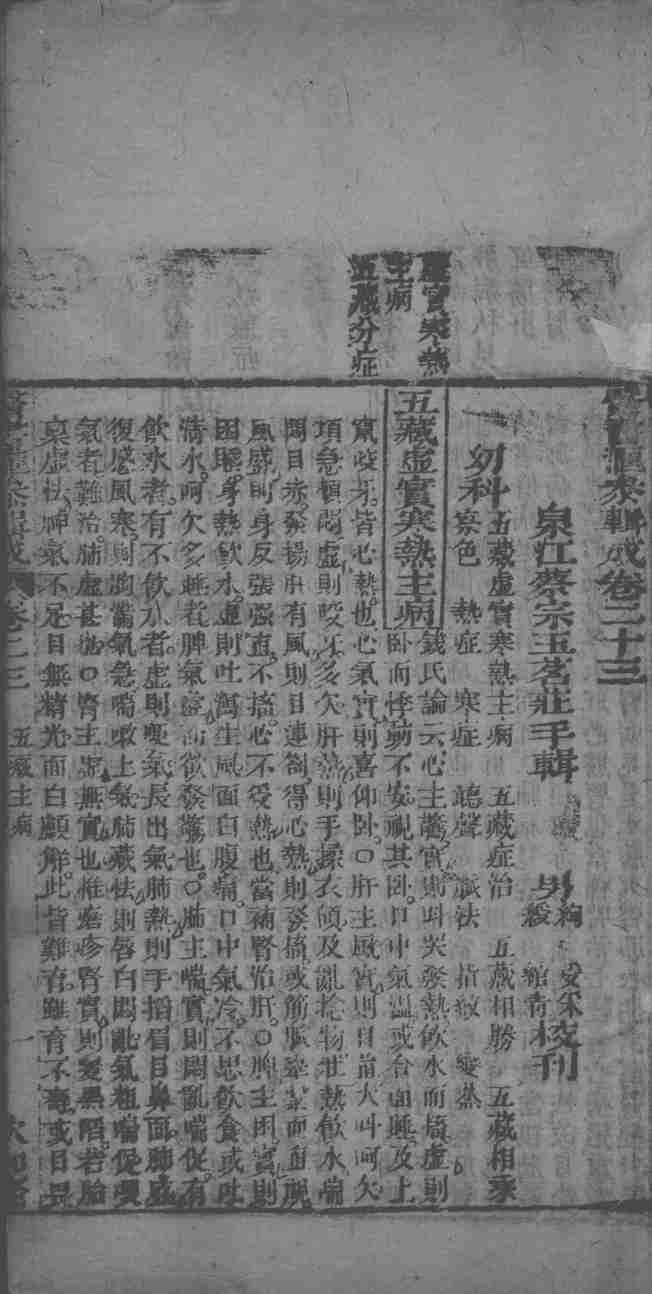 虛實寒熱
主病
五藏分症
醫書滙叅輯成卷二十三
泉江蔡宗玉茗莊手輯 男 綬 校刊
幼科 五藏虛實寒熱主病 五藏症治 五藏相勝 五藏相乘
察色 熱症 寒症 聽聲 脈法 指紋 變蒸
五藏虛實寒熱主病 錢氏論云心主驚實則叫哭發熱飲水而搐虛則
卧而悸動不安視其卧口中氣溫或合面睡及上
竄咬牙皆心熱也心氣實則喜仰卧〇肝主風實則目直大叫呵欠
項急頓悶虛則咬牙多欠肝熱則手摸衣領及亂捻物壯熱飲水喘
悶目赤發搐肝有風則目連劄得心熱則發搐或筋脈牽緊而直視
風盛則身反張强直不搐心不受熱也當補腎治肝〇脾主困實則
困睡身熱飲水虛則吐瀉生風面白腹痛口中氣冷不思飲食或吐
淸水呵欠多睡者脾氣虛而欲發驚也〇肺主喘實則悶亂喘促有
飲水者有不飲水者虛則哽氣長出氣肺熱則手掐眉目鼻面肺盛
復感風寒則胸滿氣急喘嗽上氣肺藏怯則唇白悶亂氣粗喘促哽
氣者難治肺虛甚也〇腎主虛無實也惟瘡疹腎實則變黑陷若胎
稟虛怯神氣不足目無精光面白顱解此皆難育雖育不壽或目畏
醫書滙叅輯成 卷二三 五藏主病 一